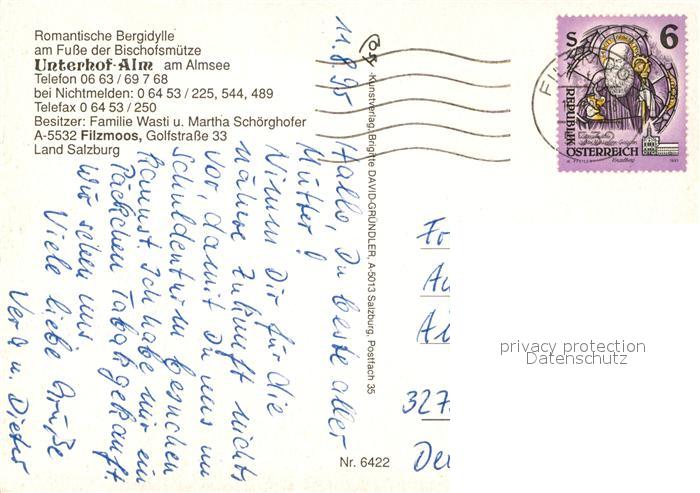 Romantische Bergidylle
am Fuße der Bischofsmütze
Unterhof-Alm am Almsee
Telefon 06 63 / 69 7 68
bei Nichtmelden: 0 64 53 / 225, 544, 489
Telefax 0 64 53 / 250
Besitzer: Familie Wasti u. Martha Schörghofer
A-5532 Filzmoos, Golfstraße 33
Land Salzburg
11.8.95
Hallo, Du beste aller
Mütter!
Nimm Dir für die
nähere Zukunft nichts
vor, damit Du uns im
Schuldenturm besuchen
kannst. Ich habe mir ein
Päckchen Tabak gekauft.
Wir sehen uns
Viele liebe Grüße
Vera u. Dieter
-Kunstverlag, Brigitte DAVID-GRÜNDLER, A-5013 Salzburg, Postfach 35
S 6
REPUBLIK
ÖSTERREICH
327
Nr. 6422
privacy protection
Datenschutz